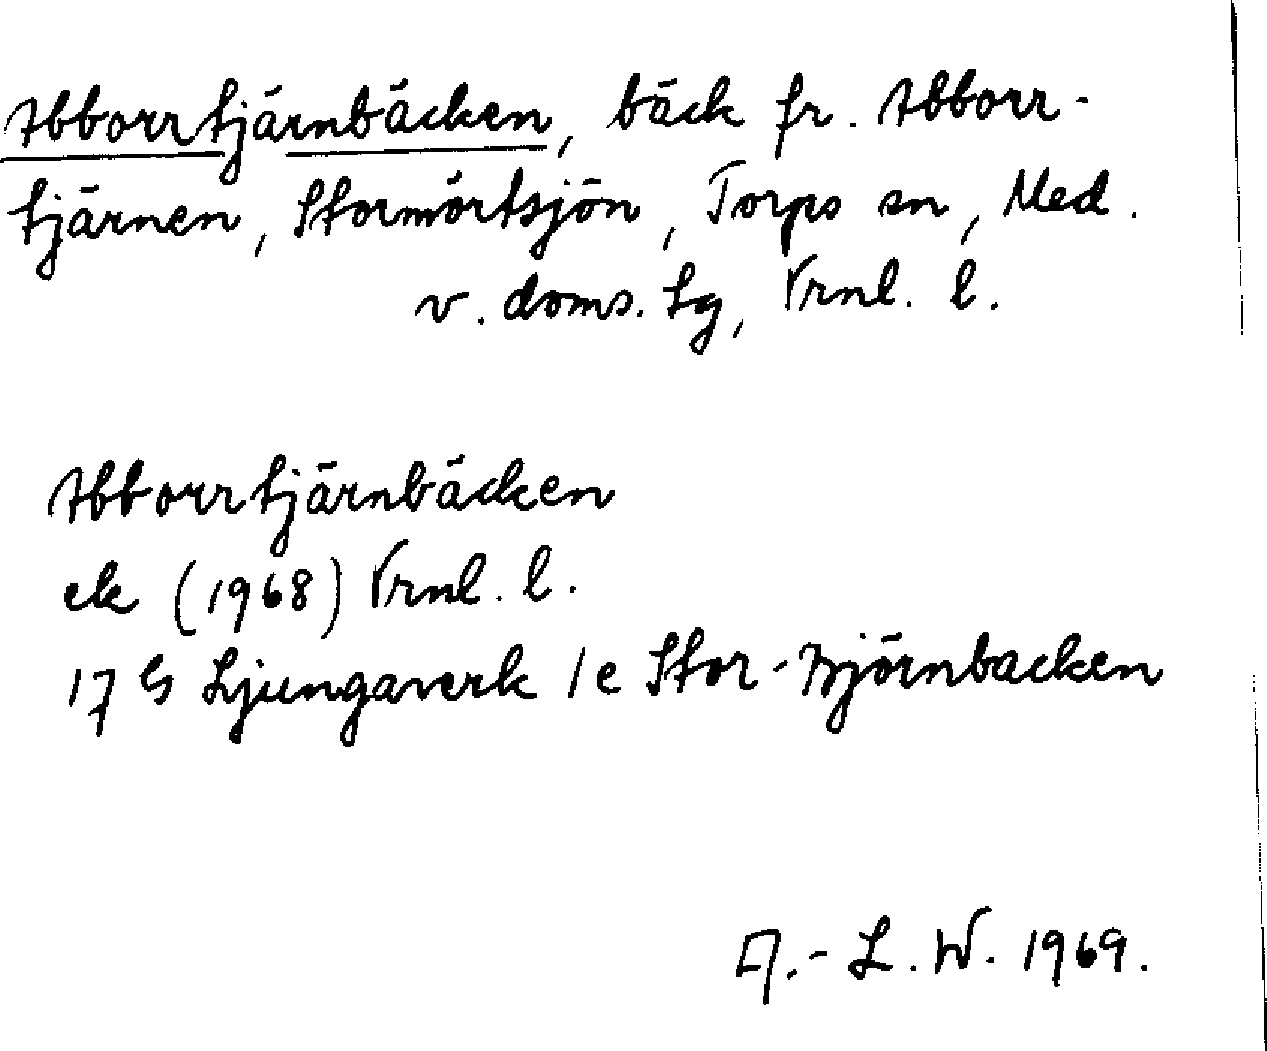 Abborrtjärnbäcken, bäck fr. Abborr-
tjärnen, Stormörtsjön, Torps sn, Med.
v. doms. tg, Vrnl. l.
Abborrtjärnbäcken
ek (1968) Vrnl. l.
17 G Ljungaverk 1e Stor-Björnbacken
A.-L. W. 1969.